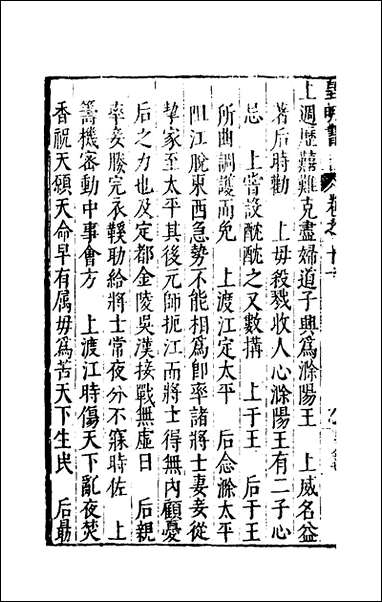 皇明書 卷之二十
上遇歷艱難克盡婦道子興為滁陽王　上威名益
著后時勸　上毋殺戮收人心滁陽王有二子心
忌　上嘗設酖酖之又數搆　上于王　后于王
所曲調護而免　上渡江定太平　后念滁太平
阻江脫東西急勢不能相為即率諸將士妻妾從
摯家至太平其後元師扼江而將士得無内顧憂
后之力也及定都金陵吳漢接戰無虛日　后親
率妾媵完衣鞵助給將士常夜分不寐時佐　上
籌機宻動中事會方　上渡江時傷天下亂夜焚
香祝天願天命早有属毋為苦天下生民　后勗